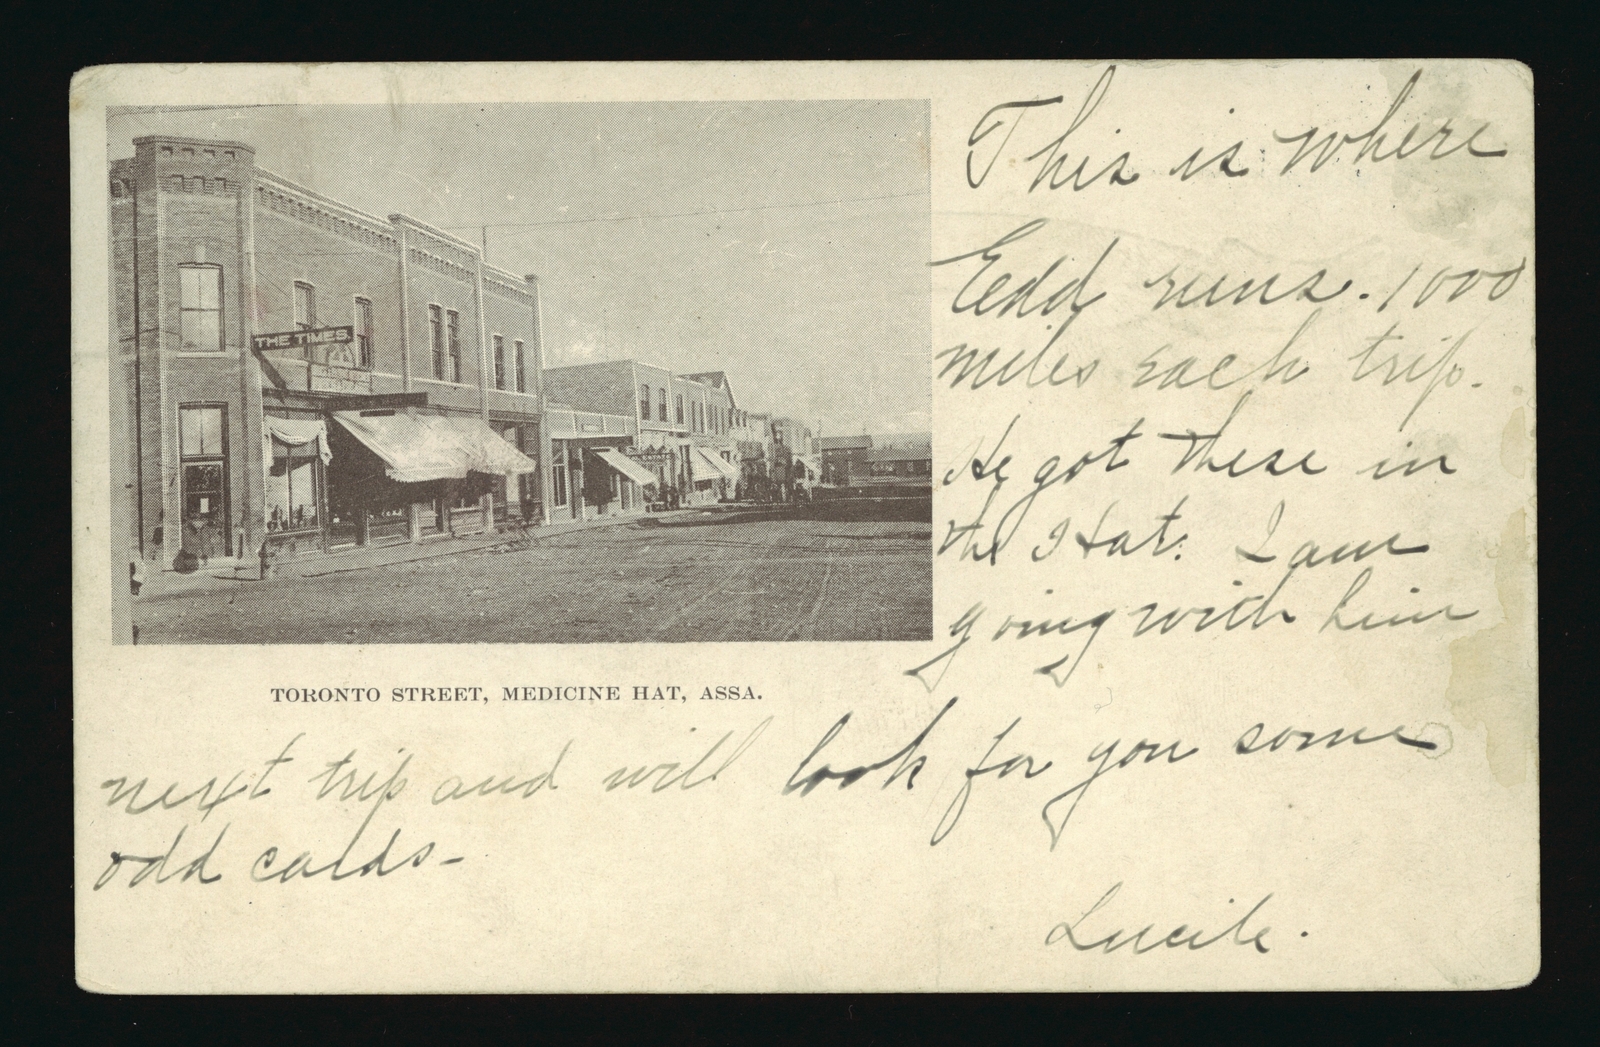 THE TIMES
TORONTO STREET, MEDICINE HAT, ASSA.
This is where
Eedd runs. 1000
miles each trip.
He got these in
the Hat. I am
going with him
next trip and will look for you some
odd cards-
Lucile.